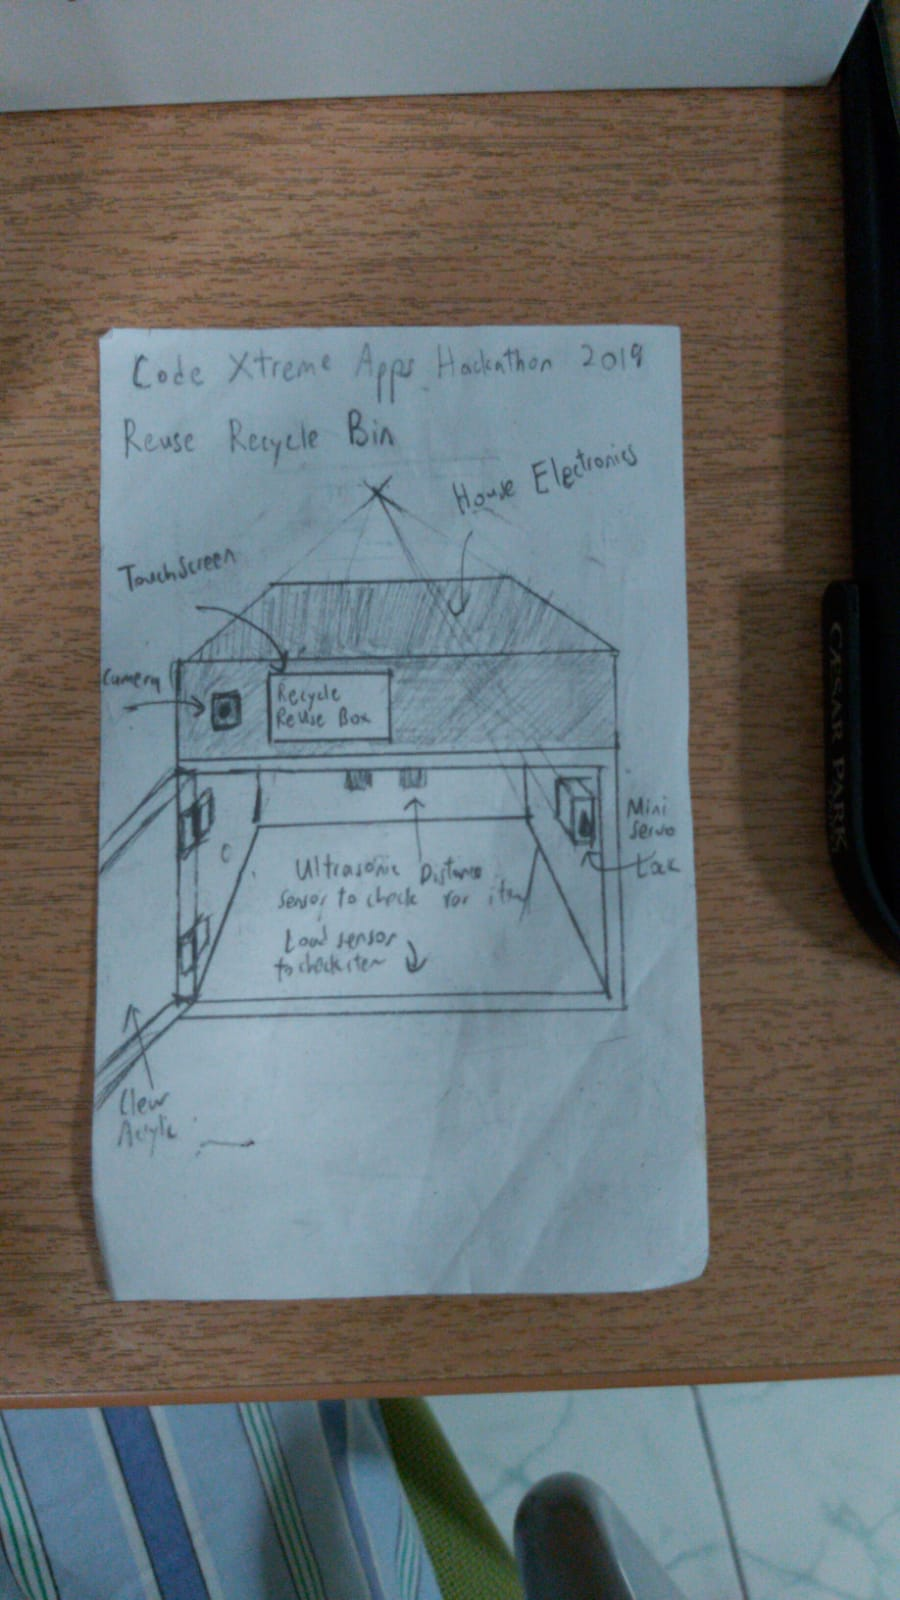 Code Xtreme Apps Hackathon 2019
Reuse Recycle Bin
House Electronics
TouchScreen
Camera
Recycle
Reuse Box
Mini
Servo
Lock
Ultrasonic Distance
sensor to check for item
Load sensor
to check item
Clear
Acrylic
CAESAR PARK